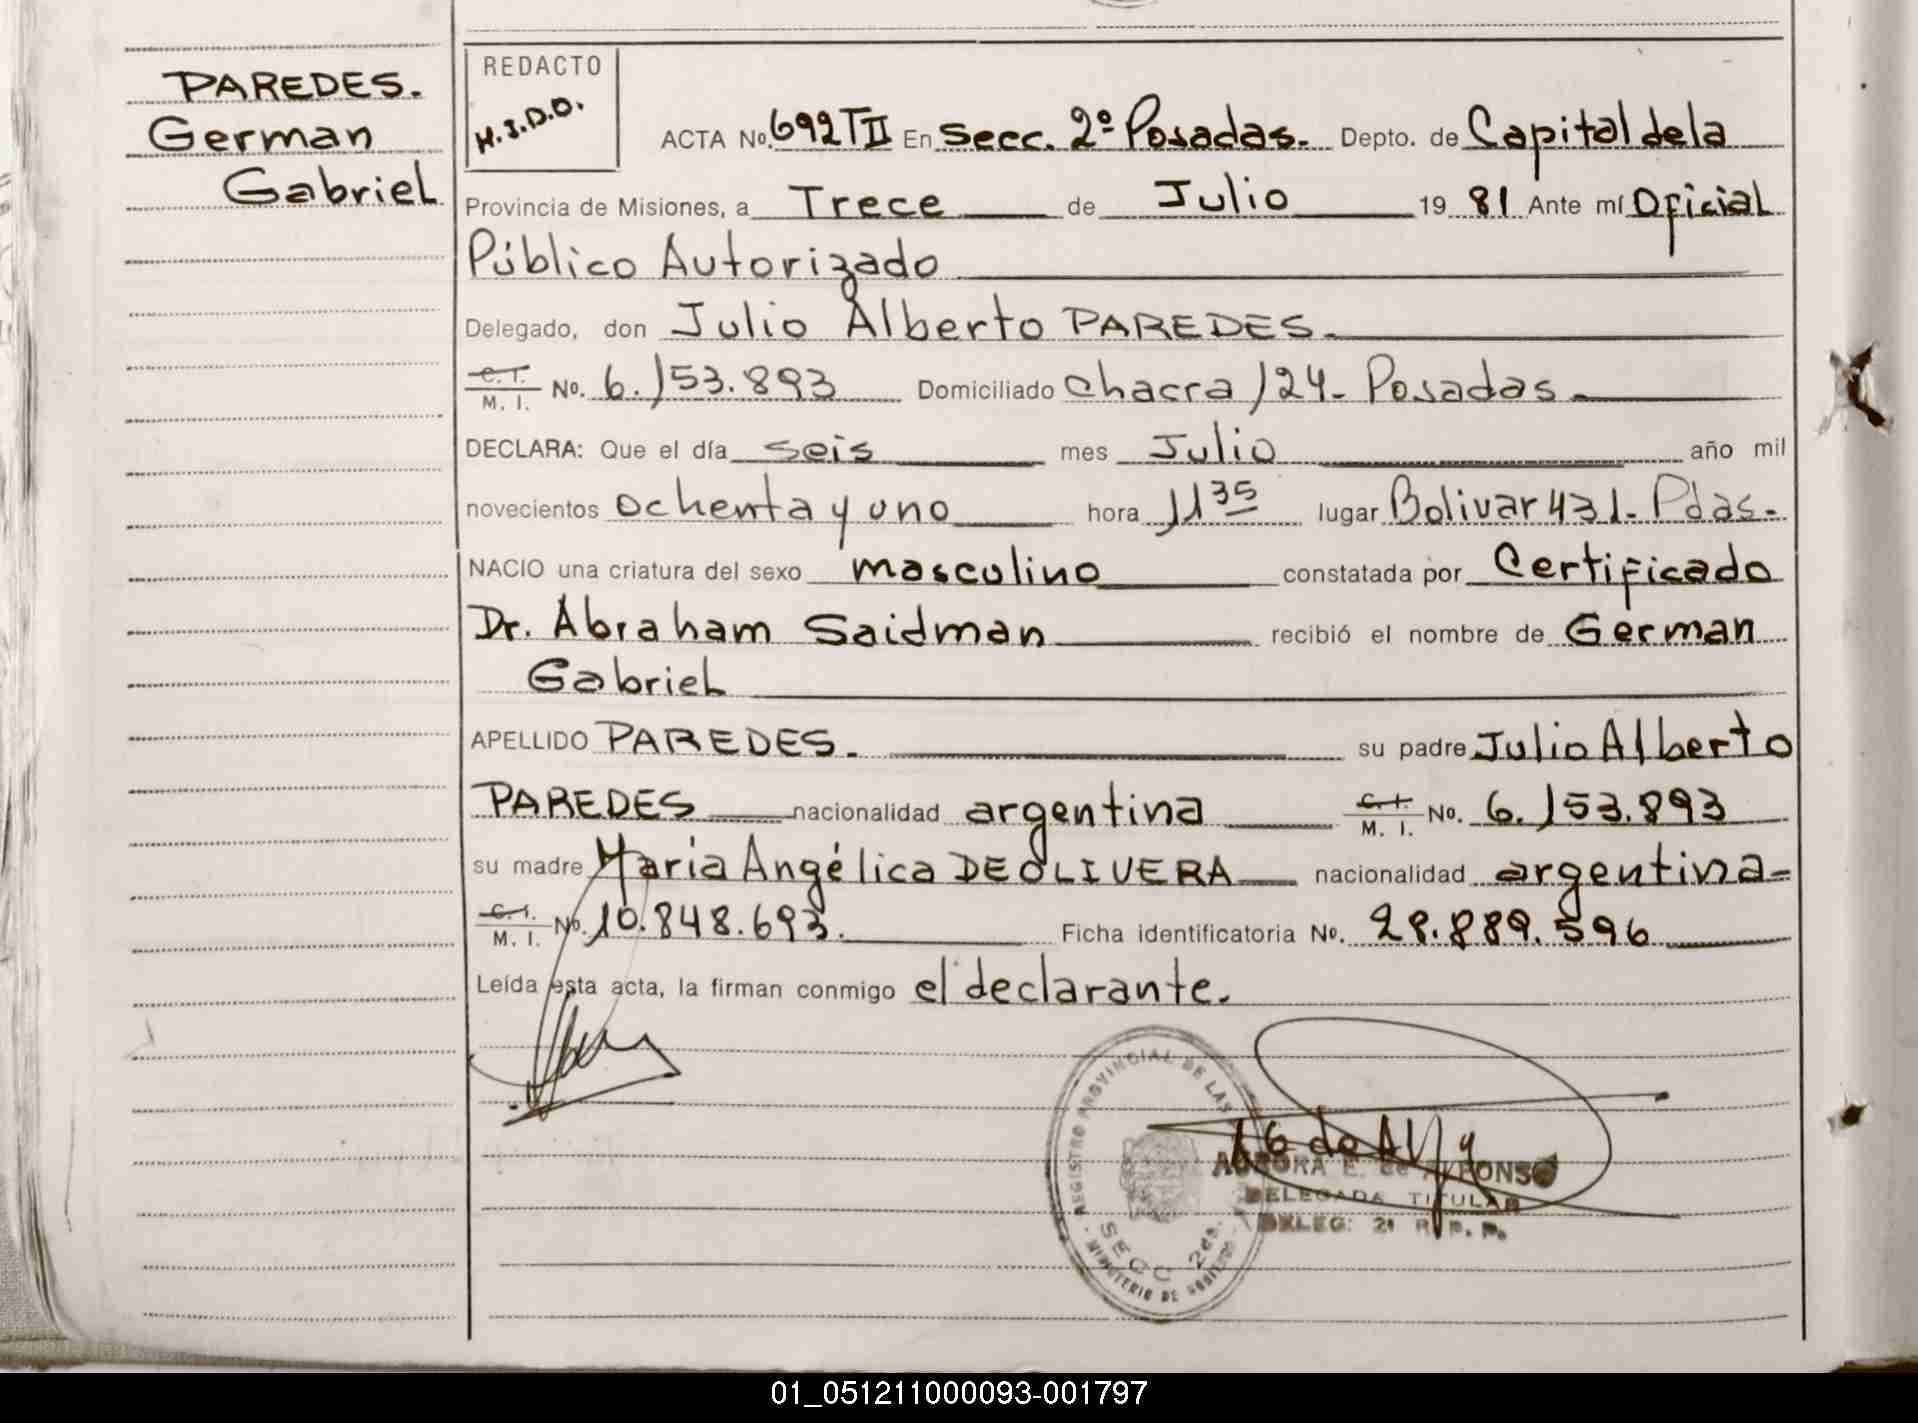 PAREDES.
German
Gabriel
REDACTO
H.I.D.O.
ACTA No. 692 TII En Secc. 2º Posadas. Depto. de Capital de la
Provincia de Misiones, a Trece de Julio 19 81 Ante mí Oficial
Público Autorizado
Delegado, don Julio Alberto PAREDES.
C. I. M. I. No. 6.153.893 Domiciliado Chacra 124- Posadas.
DECLARA: Que el día seis mes Julio año mil
novecientos ochenta y uno hora 11 35 lugar Bolivar 431- Pdas.
NACIO una criatura del sexo masculino constatada por Certificado
Dr. Abraham Saidman recibió el nombre de German
Gabriel
APELLIDO PAREDES. su padre Julio Alberto
PAREDES nacionalidad argentina C. I. M. I. No. 6.153.893
su madre Maria Angélica DEOLIVERA nacionalidad argentina-
C. I. M. I. No. 10.848.693. Ficha identificatoria No. 28.889.596
Leída esta acta, la firman conmigo el declarante.
REGISTRO PROVINCIAL DE LAS
SECC 2da.
MINISTERIO DE GOBIERNO
AURORA E. de ALFONSO
DELEGADA TITULAR
DELEG: 2ª R. P. P.
01_051211000093-001797